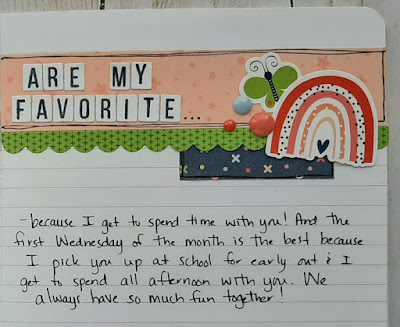 ARE MY
FAVORITE...
-because I get to spend time with you! And the
first Wednesday of the month is the best because
I pick you up at school for early out & I
get to spend all afternoon with you. We
always have so much fun together!